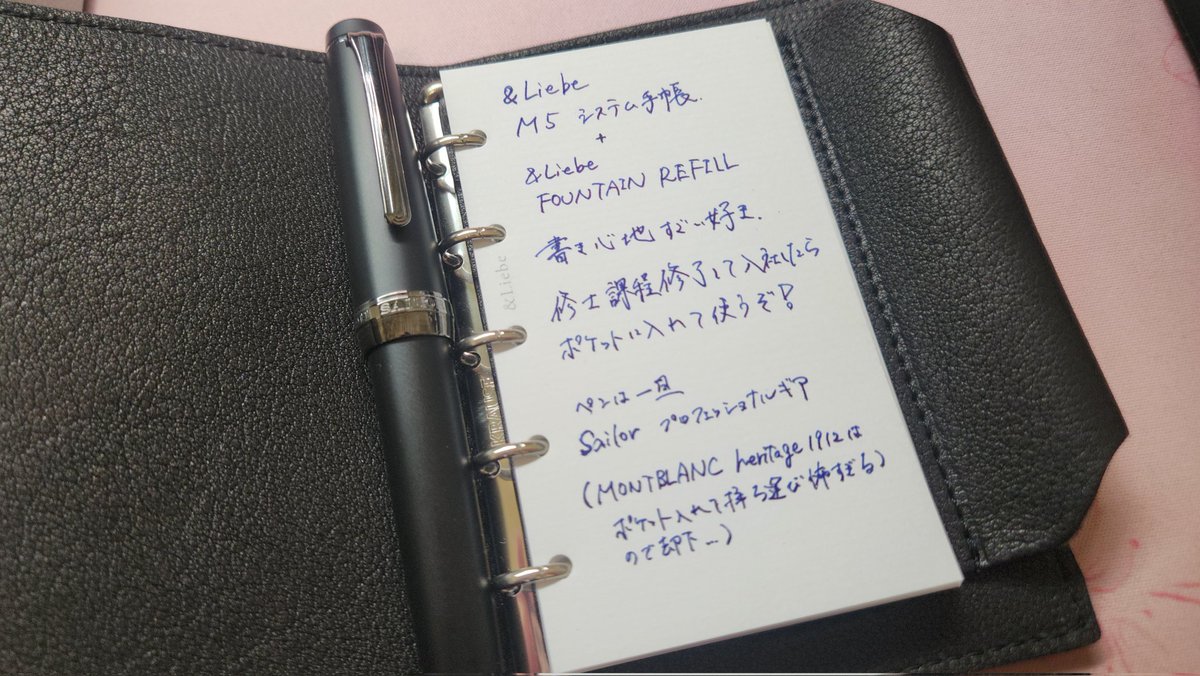 &Liebe
M5 システム手帳.
+
&Liebe
FOUNTAIN REFILL
書き心地すごい好き.
修士課程修了して入社したら
ポケットに入れて使うぞ!
ペンは一旦
Sailor プロフェッショナルギア
(MONTBLANC heritage 1912は
ポケット入れて持ち運び怖すぎる
ので却下…)
&Liebe
KRAUSE